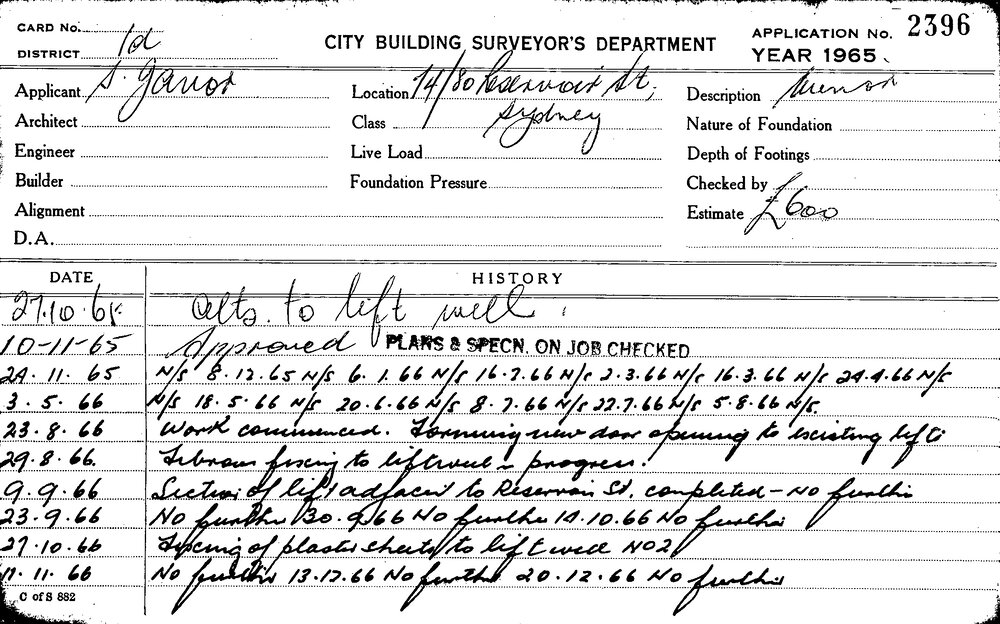 CARD No. 1d
DISTRICT
CITY BUILDING SURVEYOR'S DEPARTMENT
APPLICATION No. 2396
YEAR 1965.
Applicant S. Ganor
Location 14/80 Reservoir St,
Sydney
Description Minor
Architect
Class
Nature of Foundation
Engineer
Live Load
Depth of Footings
Builder
Foundation Pressure
Checked by
Alignment
Estimate £600
D.A.
DATE HISTORY
27.10.65. Alts. to lift well.
10-11-65 Approved PLANS & SPECN. ON JOB CHECKED
24.11.65 N/S 8.12.65 N/S 6.1.66 N/S 16.2.66 N/S 2.3.66 N/S 16.3.66 N/S 24.4.66 N/S
3.5.66 N/S 18.5.66 N/S 20.6.66 N/S 8.7.66 N/S 22.7.66 N/S 5.8.66 N/S.
23.8.66 Work commenced. Forming new door opening to existing lift
29.8.66. Fibrous fixing to liftwell in progress.
9.9.66 Section of lift adjacent to Reservoir St. completed - No further
23.9.66 No further 30.9.66 No further 14.10.66 No further
27.10.66 Fixing of plaster sheets to lift well NO2
11.11.66 No further 13.12.66 No further 20.12.66 No further
C of S 882